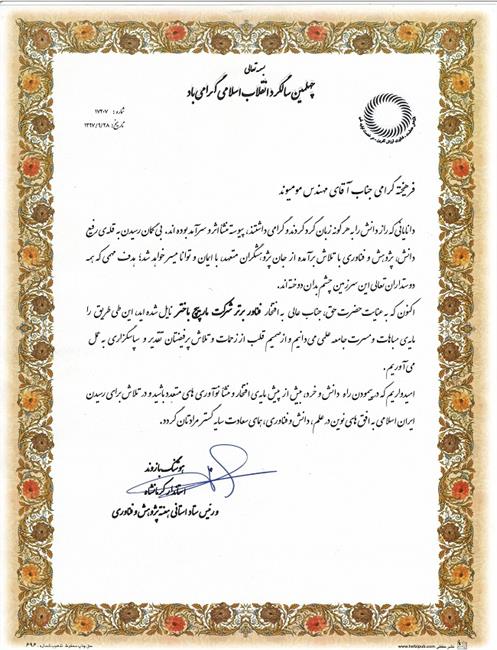 بسمه تعالی
چهلمین سالگرد انقلاب اسلامی گرامی باد
شماره: ۱۷۲۰۷
تاریخ: ۱۳۹۷/۹/۲۸
فرهیخته گرامی جناب آقای مهندس مومیوند
دانایانی که راز دانش را به هر گونه زبان گرد کردند و گرامی داشتند، پیوسته منشا اثر و سرآمد بوده اند. بی گمان رسیدن به قله‌ی رفیع
دانش، پژوهش و فناوری با تلاش برآمده از جان پژوهشگران متعهد، با ایمان و توانا میسر خواهد شد؛ هدف مهمی که همه
دوستداران تعالی این سرزمین چشم بدان دوخته اند.
اکنون که به عنایت حضرت حق، جناب عالی به افتخار فناور برتر شرکت مارپیچ باختر نایل شده اید، این طی طریق را
مایه‌ی مباهات و مسرت جامعه علمی می دانیم و از صمیم قلب از زحمات و تلاش پرفضتان تقدیر و سپاسگزاری به عمل
می آوریم.
امیدواریم که در پیمودن راه دانش و خرد، بیش از پیش مایه‌ی افتخار و منشا نوآوری های متعدد باشید و در تلاش برای رسیدن
ایران اسلامی به افق های نوین در علم، دانش و فناوری، همای سعادت سایه گستر مرادتان گردد.
هوشنگ بازوند
استاندار کرمانشاه
و رئیس ستاد استانی هفته پژوهش و فناوری
حق چاپ محفوظ تذهیب شماره: ۶۹۶
www.tazhibpub.com